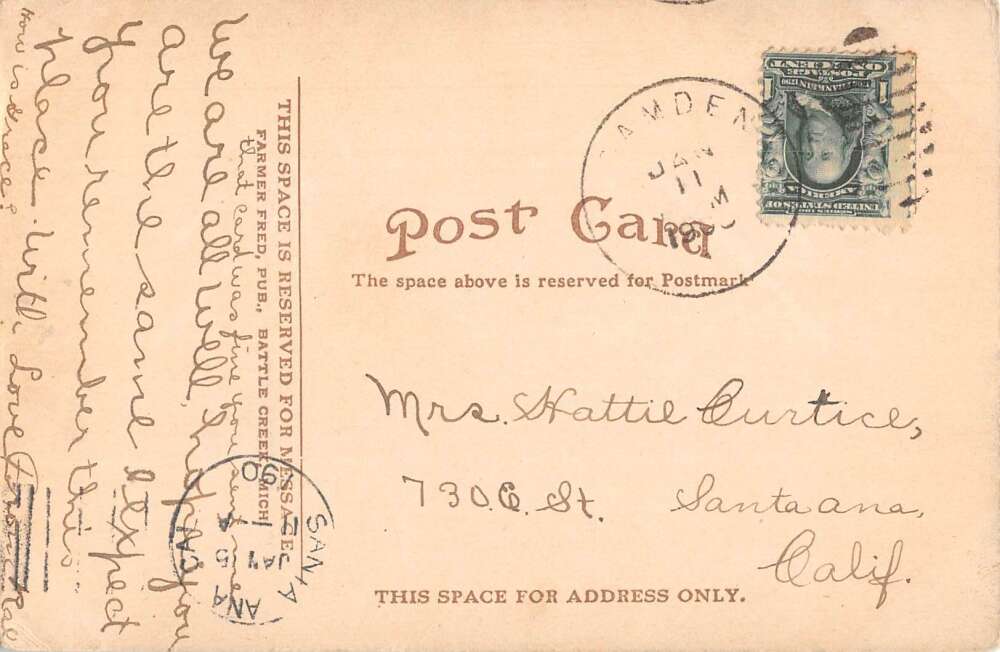 We are all well, hope you
are the same. Expect
you remember this
place. With Love from
How is Grace?
that card was fine you sent me
THIS SPACE IS RESERVED FOR MESSAGE.
FARMER FRED, PUB., BATTLE CREEK, MICH
CAMDEN
JAN
11
M
UNITED STATES OF
AMERICA
POSTAGE
ONE CENT
1 1
Post Card
The space above is reserved for Postmark
Mrs. Hattie Curtice,
730 G St. Santa ana,
Calif.
THIS SPACE FOR ADDRESS ONLY.
SANTA ANA
CAL
JAN 15
06